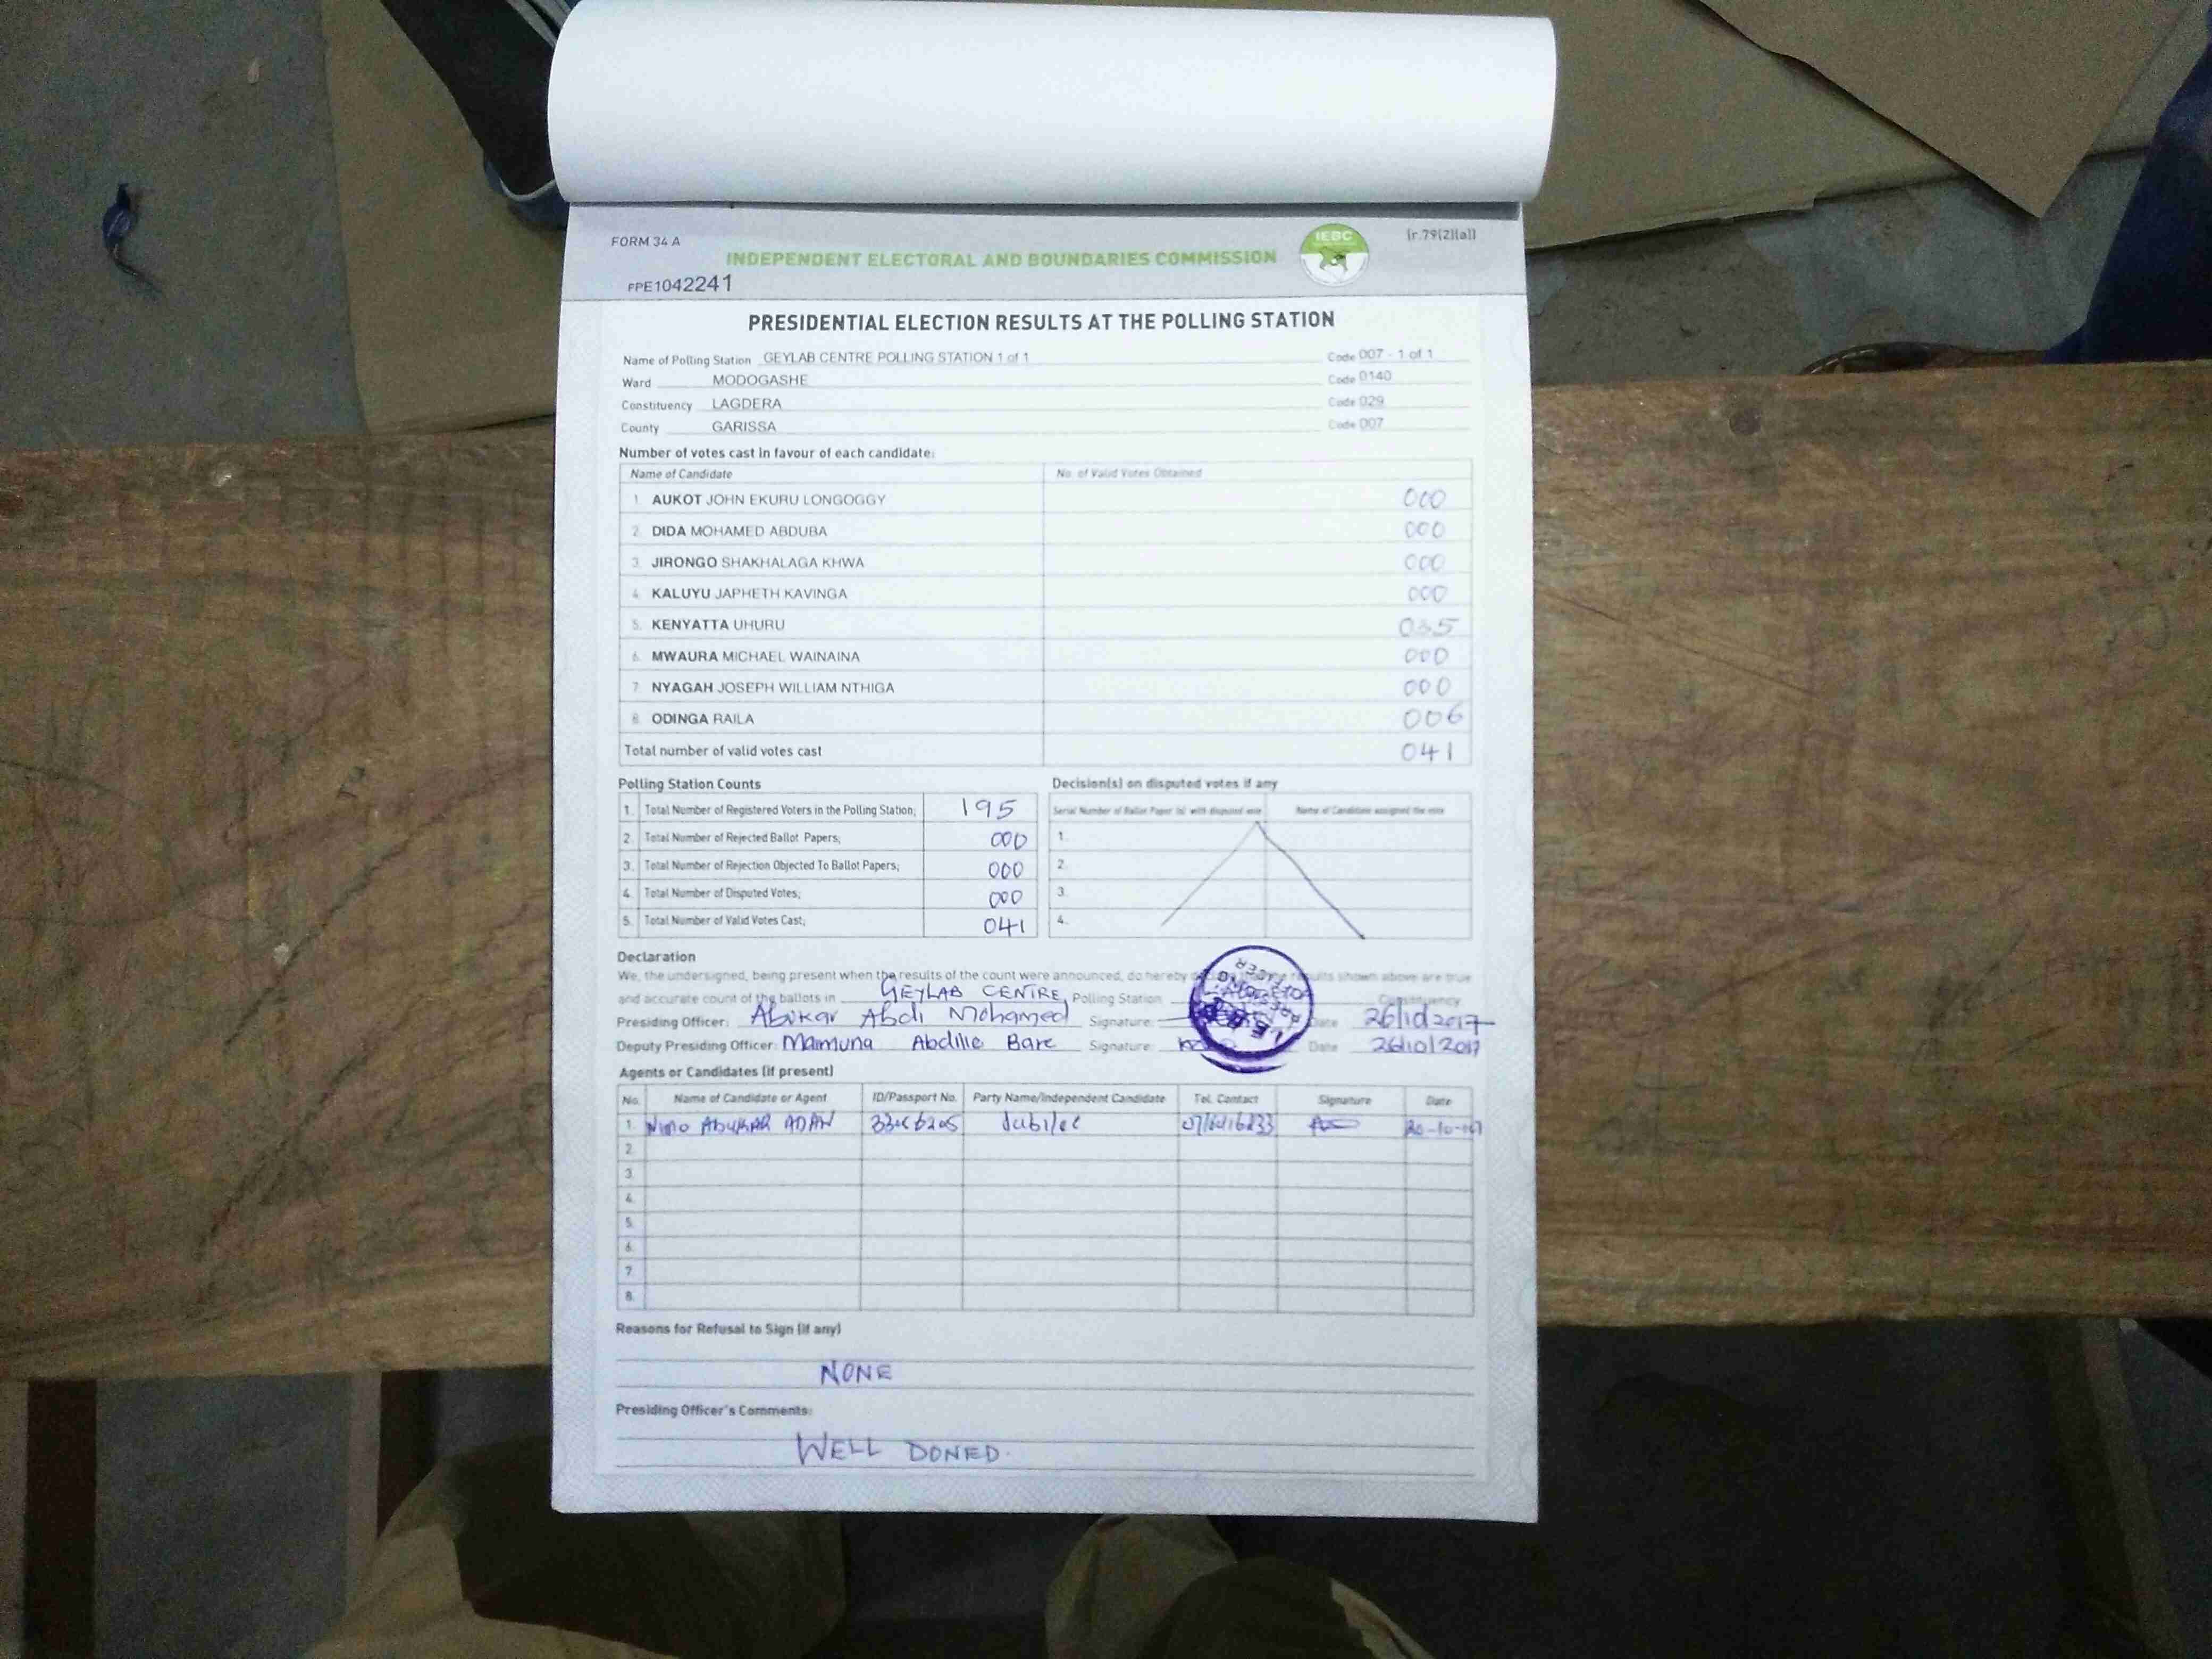 FORM 34 A
IEBC
[r.79(2)(a)]
INDEPENDENT ELECTORAL AND BOUNDARIES COMMISSION
FPE1042241
PRESIDENTIAL ELECTION RESULTS AT THE POLLING STATION
Name of Polling Station GEYLAB CENTRE POLLING STATION 1 of 1 Code 007 - 1 of 1
Ward MODOGASHE Code 0140
Constituency LAGDERA Code 029
County GARISSA Code 007
Number of votes cast in favour of each candidate:
Name of Candidate No. of Valid Votes Obtained
1. AUKOT JOHN EKURU LONGOGGY 000
2. DIDA MOHAMED ABDUBA 000
3. JIRONGO SHAKHALAGA KHWA 000
4. KALUYU JAPHETH KAVINGA 000
5. KENYATTA UHURU 035
6. MWAURA MICHAEL WAINAINA 000
7. NYAGAH JOSEPH WILLIAM NTHIGA 000
8. ODINGA RAILA 006
Total number of valid votes cast 041
Polling Station Counts
1. Total Number of Registered Voters in the Polling Station; 195
2. Total Number of Rejected Ballot Papers; 000
3. Total Number of Rejection Objected To Ballot Papers; 000
4. Total Number of Disputed Votes; 000
5. Total Number of Valid Votes Cast; 041
Decision(s) on disputed votes if any
Serial Number of Ballot Paper (s) with disputed vote Name of Candidate assigned the vote
1.
2.
3.
4.
Declaration
We, the undersigned, being present when the results of the count were announced, do hereby results shown above are true
and accurate count of the ballots in GEYLAB CENTRE Polling Station Constituency
Presiding Officer: Abukar Abdi Mohamed Signature: Date 26/10/2017
Deputy Presiding Officer: Maimuna Abdille Bare Signature: Date 26/10/2017
Agents or Candidates (if present)
No. Name of Candidate or Agent ID/Passport No. Party Name/Independent Candidate Tel. Contact Signature Date
1. NIMO ABUKAR ADAN Jubilee
2.
3.
4.
5.
6.
7.
8.
Reasons for Refusal to Sign (if any)
NONE
Presiding Officer's Comments:
WELL DONED.